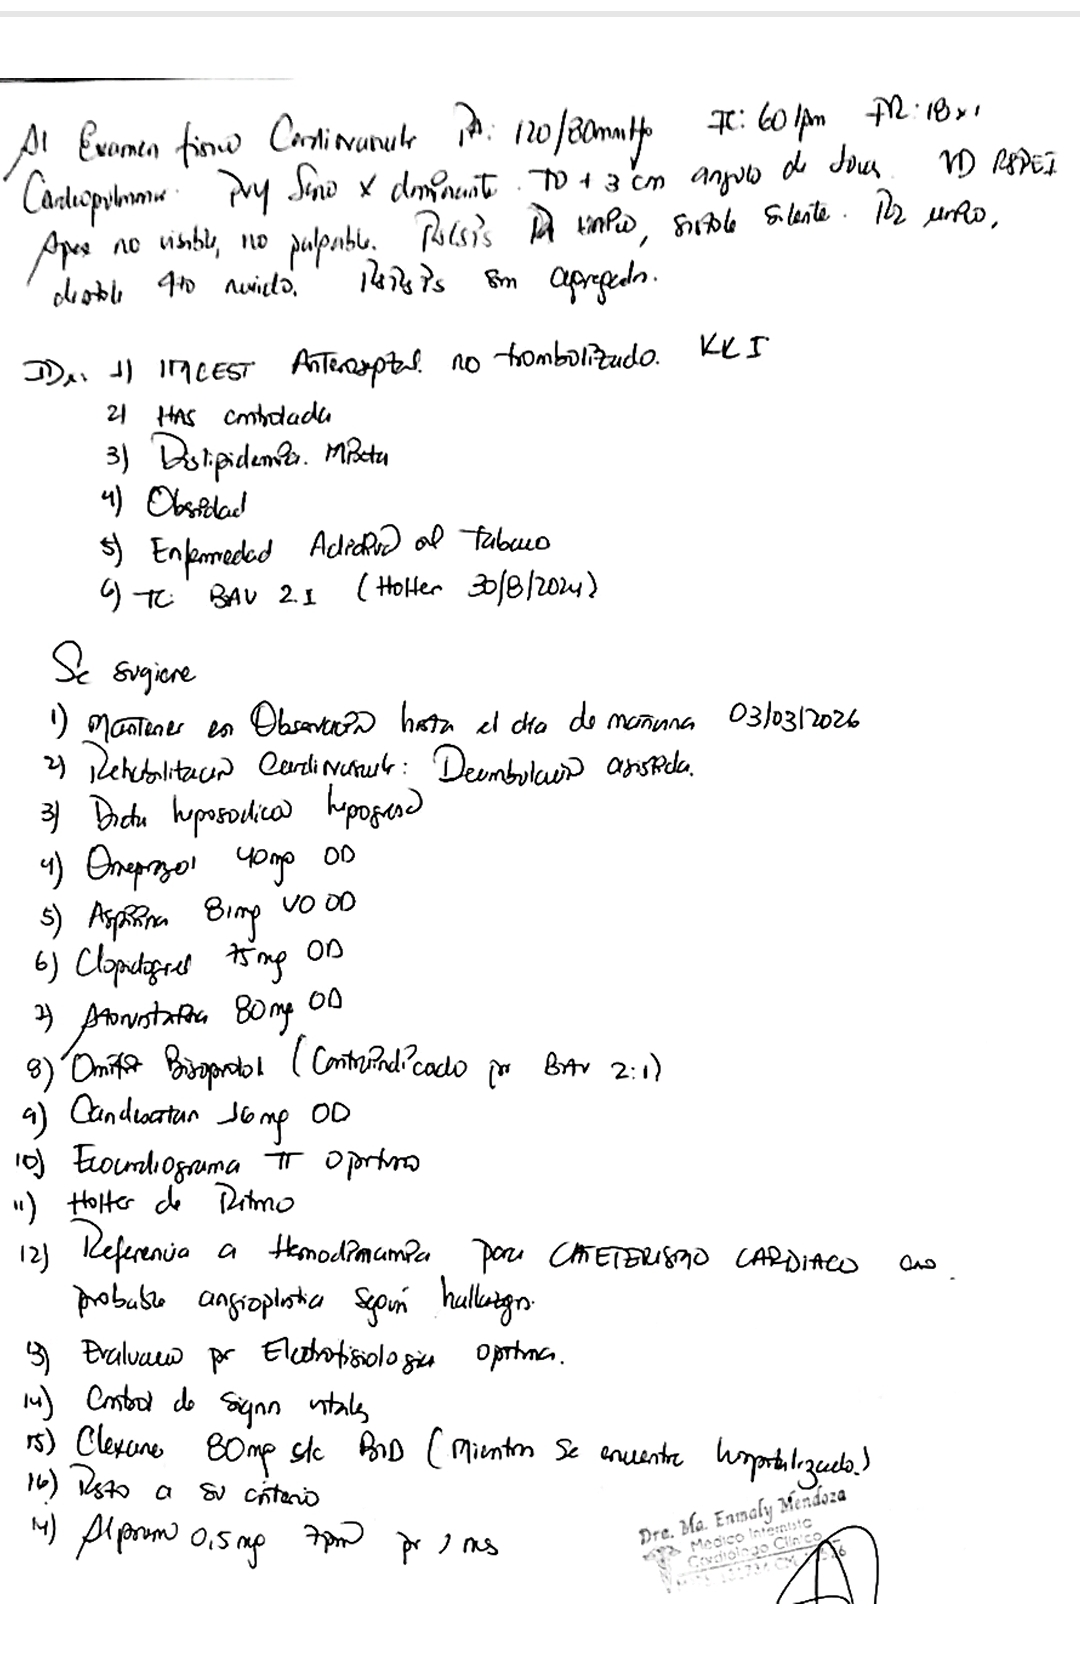 Al Examen físico Cardiovascular PA: 120/80mmHg FC: 60 lpm FR: 18 x'
Cardiopulmonar. PVY Seno x dominante. TO + 3 cm angulo de Louis. VD RSPEI
Apex no visible, no palpable. único, sistole silente. R2 único,
diastole 4to ruido. RsRsPs sin agregados.
IDx: 1) IMCEST Anteroseptal. no trombolizado. KK I
2) HAS controlada
3) Dislipidemia. Mixta
4) Obesidad
5) Enfermedad Adictiva al tabaco
6) TC: BAV 2:1 (Holter 30/8/2024)
Se sugiere
1) Mantener en Observación hasta el dia de mañana 03/03/2026
2) Rehabilitación Cardiovascular: Deambulación asistida.
3) Dieta hiposodica hipograsa
4) Omeprazol 40mg OD
5) Aspirina 81mg VO OD
6) Clopidogrel 75mg OD
7) Atorvastatina 80mg OD
8) Omitir Bisoprolol (Contraindicado por BAV 2:1)
9) Candesartan 16mg OD
10) Ecocardiograma TT
11) Holter de Ritmo
12) Referencia a Hemodinamia para CATETERISMO CARDIACO
probable angioplastia según hallazgos.
13) Evaluación por Electrofisiologia
14) Control de signos vitales
15) Clexane 80mg s/c BID (Mientras se encuentre hospitalizado.)
16) Resto a su criterio
14) 0,5mg 7pm por 1 mes
Dra. Ma. Enmaly Mendoza
Medico Internista
Cardiologo Clinico